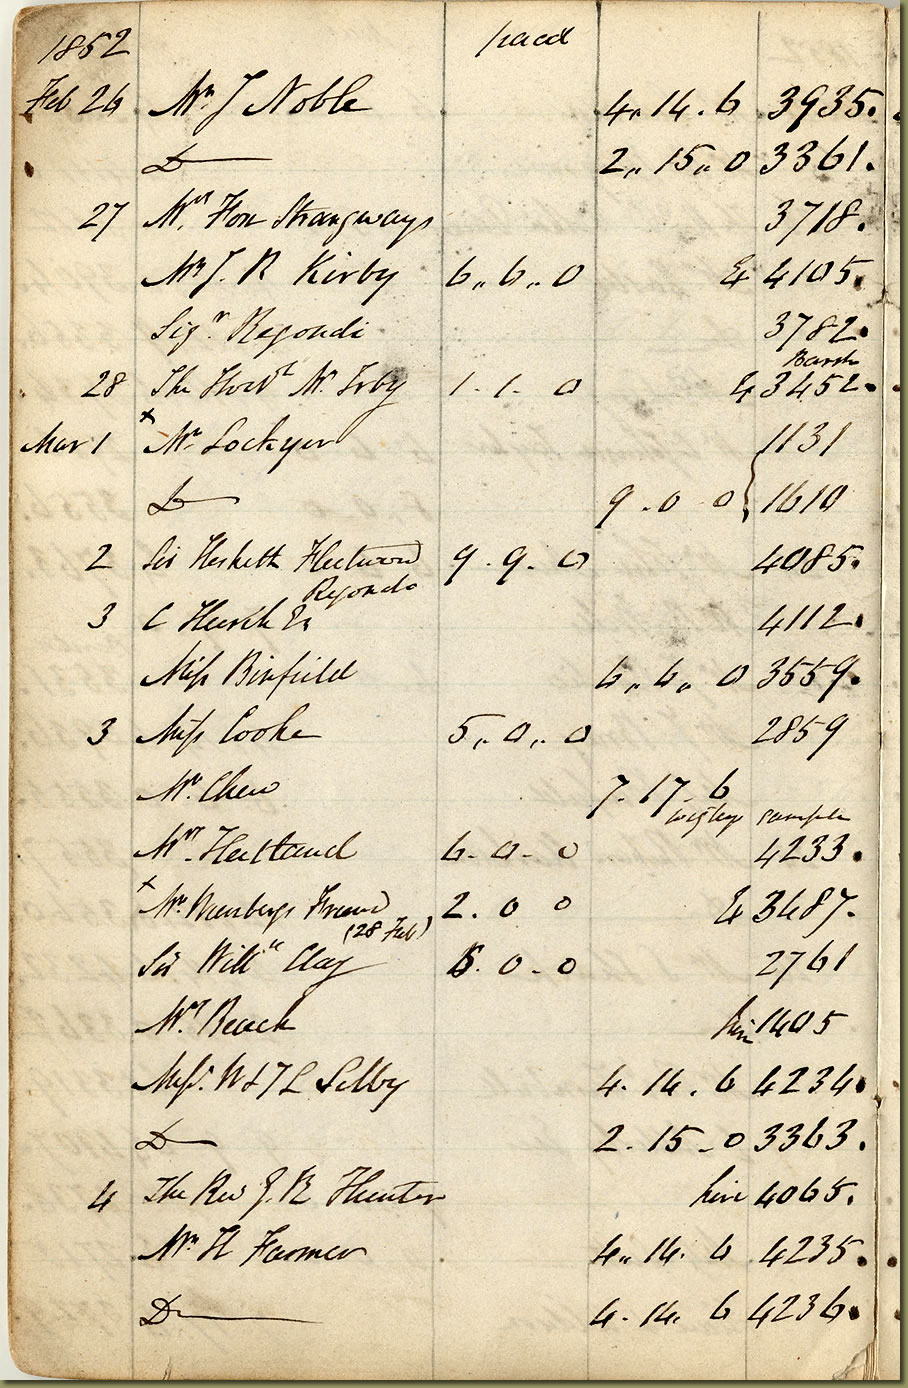 1852 paid
Feb 26 Mr J Noble 4.14.6 3935.
D 2,,15,,0 3361.
27 Mrs Fox Strangways 3718.
Mr J. R Kirby 6,,6,,0 4105.
Sigr Regondi 3782.
Barth
28 The Honble Mr Irby 1.1.0 3452.
x
Mar 1 Mr Lockyer 1131
D 9.0 0 1610
2 Sir Hesketh Fleetwood 9.9.0 4085.
Regondi
3 C Hersh Es 4112.
Miss Binfield 6,,6,,0 3559.
3 Miss Cooke 5,,0,,0 2859
Mr. Chew 7.17.6
sample
Mrs. Heitland 6.0-0 4233.
x
Mr. Friend 2.0 0 3487.
(28 Feb)
Sir Willm Clay 5.0-0 2761
Mrs. Beack hire 1405
Messrs. W & T L Selby 4.14.6 4234.
D 2.15-0 3363.
4 The Rev J. R Hunter hire 4065.
Mr H Farmer 4,,14.6 4235.
D 4.14.6 4236.